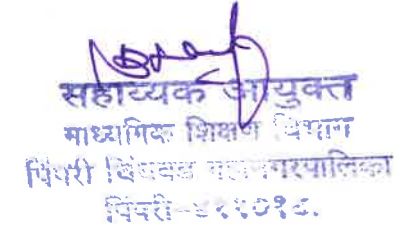 सहाय्यक आयुक्त
माध्यमिक शिक्षण विभाग
पिंपरी चिंचवड महानगरपालिका
पिंपरी-४११०१८.